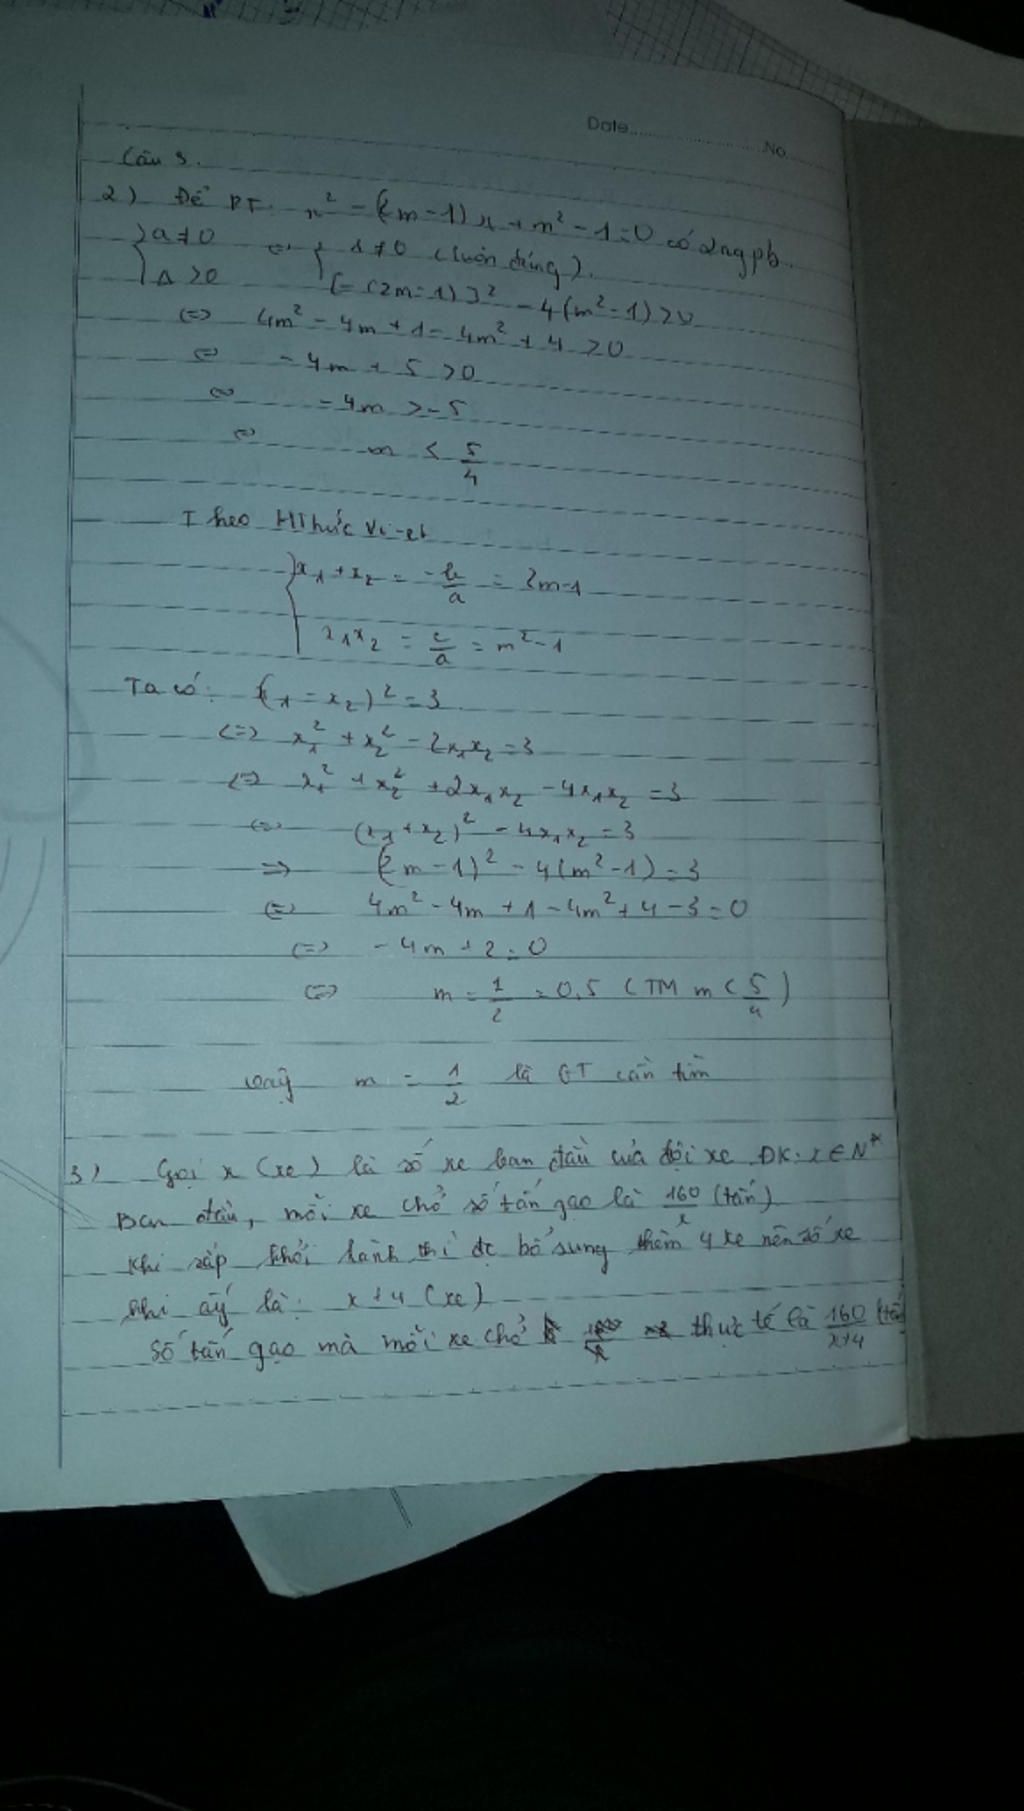 Date.......................No
Câu 3.
2) Để PT: x² - (2m-1)x + m² - 1 = 0 có 2 ng pb
{ a ≠ 0 <=> { 1 ≠ 0 (luôn đúng).
Δ > 0 [-(2m-1)]² - 4(m²-1) > 0
<=> 4m² - 4m + 1 - 4m² + 4 > 0
<=> -4m + 5 > 0
<=> -4m > -5
<=> m < 5/4
Theo HThức Vi-et
{ x₁ + x₂ = -b/a = 2m-1
x₁x₂ = c/a = m²-1
Ta có: (x₁ - x₂)² = 3
<=> x₁² + x₂² - 2x₁x₂ = 3
<=> x₁² + x₂² + 2x₁x₂ - 4x₁x₂ = 3
<=> (x₁ + x₂)² - 4x₁x₂ = 3
=> (2m-1)² - 4(m²-1) = 3
<=> 4m² - 4m + 1 - 4m² + 4 - 3 = 0
<=> -4m + 2 = 0
<=> m = 1/2 = 0,5 (TM m < 5/4)
Vậy m = 1/2 là GT cần tìm
3) Gọi x (xe) là số xe ban đầu của đội xe ĐK: x ∈ N*
Ban đầu, mỗi xe chở số tấn gạo là 160/x (tấn)
Khi sắp khởi hành thì đc bổ sung thêm 4 xe nên số xe
khi ấy là: x + 4 (xe)
Số tấn gạo mà mỗi xe chở thực tế là 160/x+4 (tấn